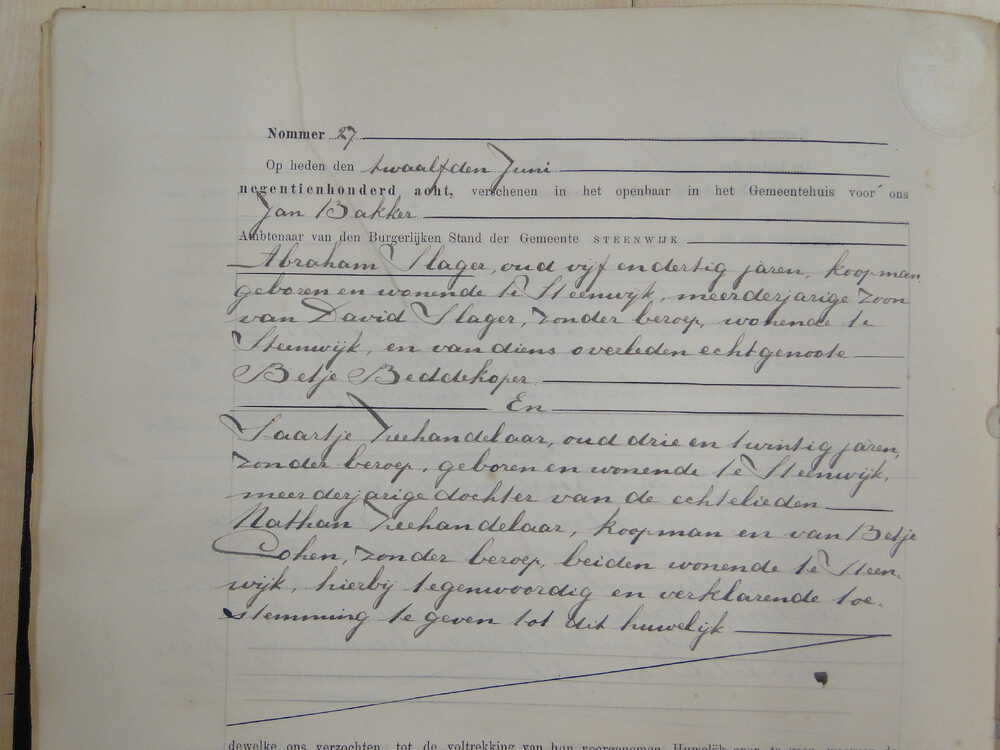 Nommer 27
Op heden den twaalfden Juni
negentienhonderd acht, verschenen in het openbaar in het Gemeentehuis voor ons
Jan Bakker
Ambtenaar van den Burgerlijken Stand der Gemeente STEENWIJK
Abraham Slager, oud vijf en dertig jaren, koopman
geboren en wonende te Steenwijk, meerderjarige zoon
van David Slager, zonder beroep, wonende te
Steenwijk, en van diens overleden echtgenoote
Betje Beddekoper
En
Saartje Zeehandelaar, oud drie en twintig jaren,
zonder beroep, geboren en wonende te Steenwijk,
meerderjarige dochter van de echtelieden
Nathan Zeehandelaar, koopman en van Betje
Cohen, zonder beroep, beiden wonende te Steen-
wijk, hierbij tegenwoordig en verklarende toe-
stemming te geven tot dit huwelijk
dewelke ons verzochten tot de voltrekking van hun voorgenomen Huwelijk over te gaan